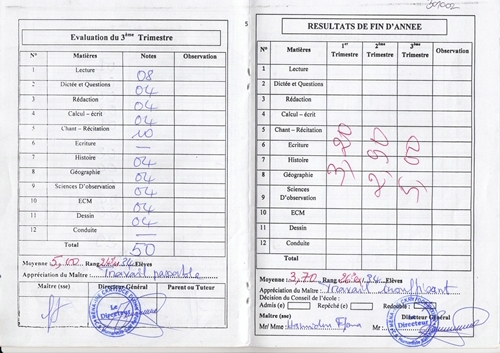 301002
5
Evaluation du 3ème Trimestre
N° Matières Notes Observation
1 Lecture 08
2 Dictée et Questions 04
3 Rédaction 04
4 Calcul – écrit 04
5 Chant – Récitation 10
6 Ecriture —
7 Histoire 04
8 Géographie 04
9 Sciences D'observation 04
10 ECM 04
11 Dessin 04
12 Conduite —
Total 50
Moyenne 5,00 Rang 24e/34 Elèves
Appréciation du Maître : Travail passable
Maître (sse) Directeur Général Parent ou Tuteur
Le Directeur
RESULTATS DE FIN D'ANNEE
N° Matières 1er Trimestre 2ème Trimestre 3ème Trimestre Observation
1 Lecture
2 Dictée et Questions
3 Rédaction
4 Calcul – écrit
5 Chant – Récitation
6 Ecriture
7 Histoire
8 Géographie
9 Sciences D'observation
10 ECM
11 Dessin
12 Conduite
Total
3,20 2,90 5,00
Moyenne 3,70 Rang 26e/34 Elèves
Appréciation du Maître : Travail insuffisant
Décision du Conseil de l'école :
Admis (e) Repêché (e) Redouble
Maître (sse) Directeur Général
Mr/ Mme
Directeur